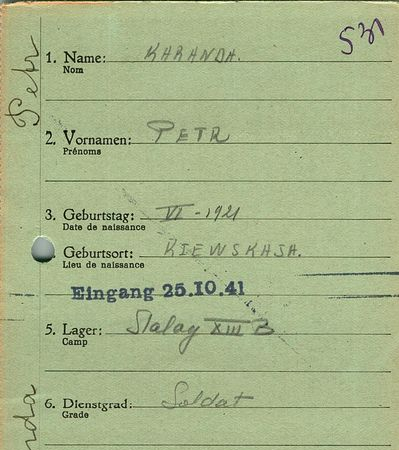 531
1. Name: KARANDA.
Nom
Petr
2. Vornamen: PETR
Prénoms
3. Geburtstag: VI - 1921
Date de naissance
Geburtsort: KIEWSKAJA.
Lieu de naissance
Eingang 25.10.41
5. Lager: Stalag XIII B
Camp
6. Dienstgrad: Soldat
Grade
nda